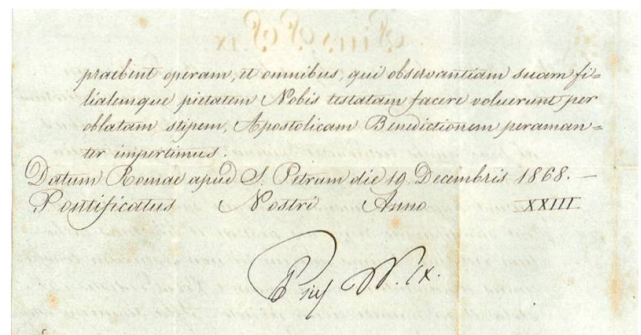 praebent operam, et omnibus, qui observantiam suam fi=
lialemque pietatem Nobis testatam facere voluerunt per
oblatam stipem, Apostolicam Benedictionem peraman=
ter impertimus.
Datum Romae apud S. Petrum die 19. Decembris 1868. —
Pontificatus Nostri Anno XXIII
Pius PP. IX.